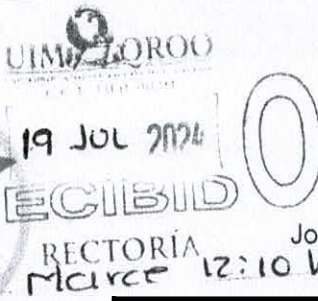 UIM QROO
19 JUL 2024
ECIBID
O
RECTORÍA
Jo
Marce 12:10